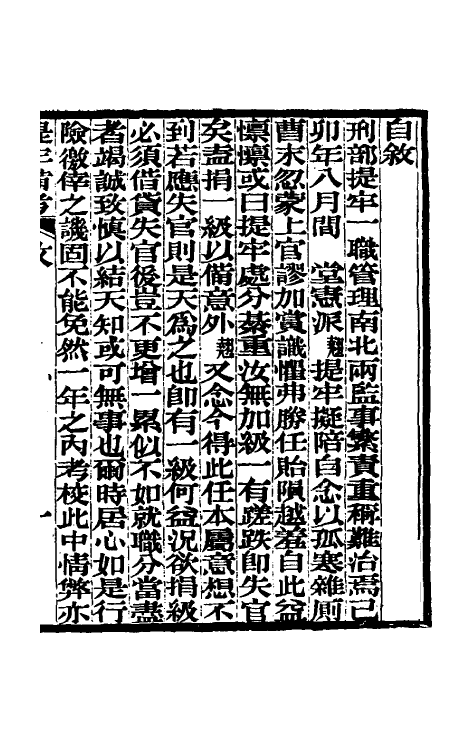 自敘
刑部提牢一職管理南北兩監事繁責重稱難治焉己
卯年八月間　堂憲派翹提牢擬陪自念以孤寒雜廁
曹末忽蒙上官謬加賞識懼弗勝任貽隕越羞自此益
懍懍或曰提牢處分綦重汝無加級一有蹉跌即失官
矣盍捐一級以備意外翹又念今得此任本屬意想不
到若應失官則是天為之也即有一級何益況欲捐級
必須借貸失官後豈不更增一累似不如就職分當盡
者竭誠致慎以結天知或可無事也爾時居心如是行
險徼倖之譏固不能免然一年之內考校此中情弊亦
提牢備考　敘　一